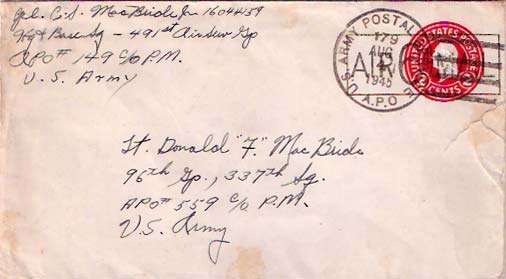 Cpl. C.S. MacBride Jr 16044159
Hq & Base Sq - 491st Air Serv Gp
APO# 149 c/o P.M.
U.S. Army
U.S. ARMY POSTAL
179
AUG
1945
A.P.O.
AIR
UNITED STATES POSTAGE
2 CENTS 2
Lt. Donald "F." MacBride
96th Gp., 337th Sq.
APO# 559 c/o P.M.
U.S. Army